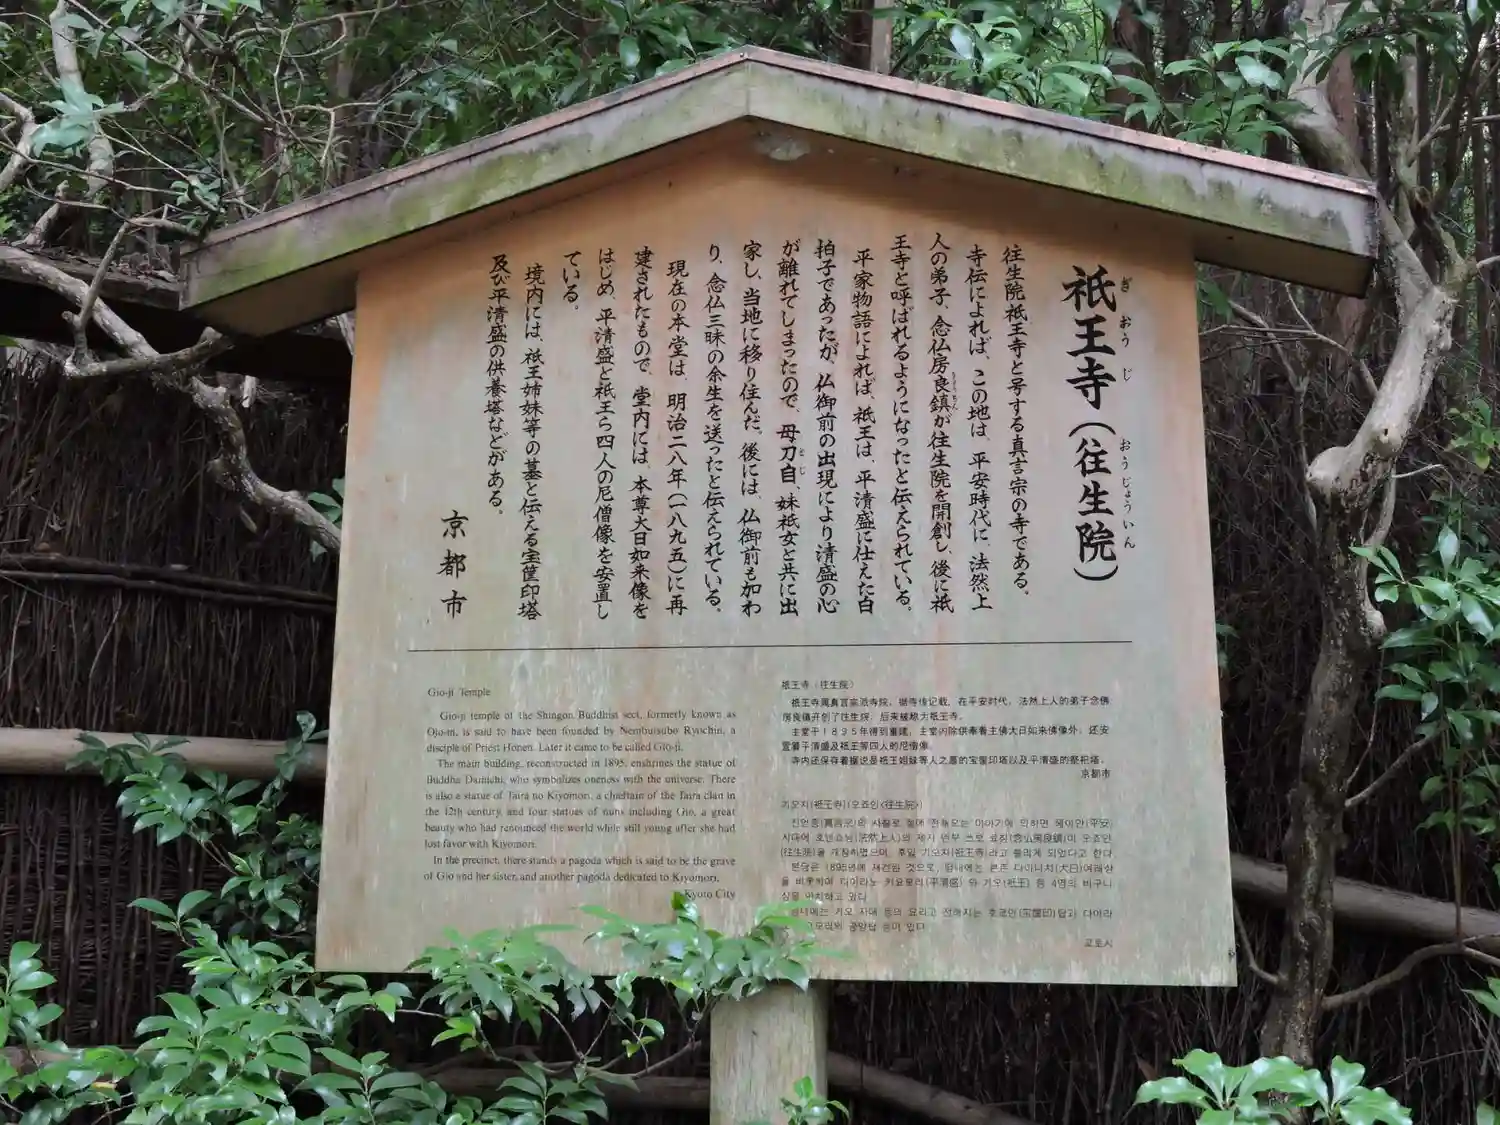 祇王寺（往生院）
ぎおうじ
おうじょういん
往生院祇王寺と号する真言宗の寺である。
寺伝によれば、この地は、平安時代に、法然上
人の弟子、念仏房良鎮が往生院を開創し、後に祇
王寺と呼ばれるようになったと伝えられている。
平家物語によれば、祇王は、平清盛に仕えた白
拍子であったが、仏御前の出現により清盛の心
が離れてしまったので、母刀自、妹祇女と共に出
とじ
家し、当地に移り住んだ。後には、仏御前も加わ
り、念仏三昧の余生を送ったと伝えられている。
現在の本堂は、明治二八年（一八九五）に再
建されたもので、堂内には、本尊大日如来像を
はじめ、平清盛と祇王ら四人の尼僧像を安置し
ている。
境内には、祇王姉妹等の墓と伝える宝筐印塔
及び平清盛の供養塔などがある。
京都市
Gio-ji Temple
Gio-ji temple of the Shingon Buddhist sect, formerly known as
Ojo-in, is said to have been founded by Nembutsubo Ryochin, a
disciple of Priest Honen. Later it came to be called Gio-ji.
The main building, reconstructed in 1895, enshrines the statue of
Buddha Dainichi, who symbolizes oneness with the universe. There
is also a statue of Taira no Kiyomori, a chieftain of the Taira clan in
the 12th century, and four statues of nuns including Gio, a great
beauty who had renounced the world while still young after she had
lost favor with Kiyomori.
In the precinct, there stands a pagoda which is said to be the grave
of Gio and her sister, and another pagoda dedicated to Kiyomori.
Kyoto City
祇王寺（往生院）
祇王寺属真言宗派寺院。据寺传记载，在平安时代，法然上人的弟子念佛
房良镇开创了往生院，后来被称为祇王寺。
主堂于1895年得到重建，主堂内除供奉着主佛大日如来佛像外，还安
置着平清盛及祇王等四人的尼僧像。
寺内还保存着据说是祇王姐妹等人之墓的宝箧印塔以及平清盛的祭祀塔。
京都市
기오지(祇王寺)(오죠인<往生院>)
진언종(真言宗)의 사찰로 절에 전해오는 이야기에 의하면 헤이안(平安)
시대에 호넨쇼닌(法然上人)의 제자 넨부쓰보 료친(念仏房良鎮)이 오죠인
(往生院)을 개창하였으며, 후일 기오지(祇王寺)라고 불리게 되었다고 한다.
본당은 1895년에 재건된 것으로, 당내에는 본존 다이니치(大日)여래상
을 비롯하여 다이라노 키요모리(平清盛)와 기오(祇王) 등 4명의 비구니
상을 안치하고 있다.
경내에는 기오 자매 등의 묘라고 전해지는 호쿄인(宝篋印)탑과 다이라
공양탑 등이 있다.
교토시